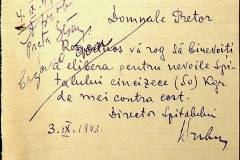 Domnule Pretor
Respectuos vă rog să binevoiți
a elibera pentru nevoile Spi-
talului cincizece (50) Kgr
de mei contra cost.
Director Spitalului
3.IX.1943.